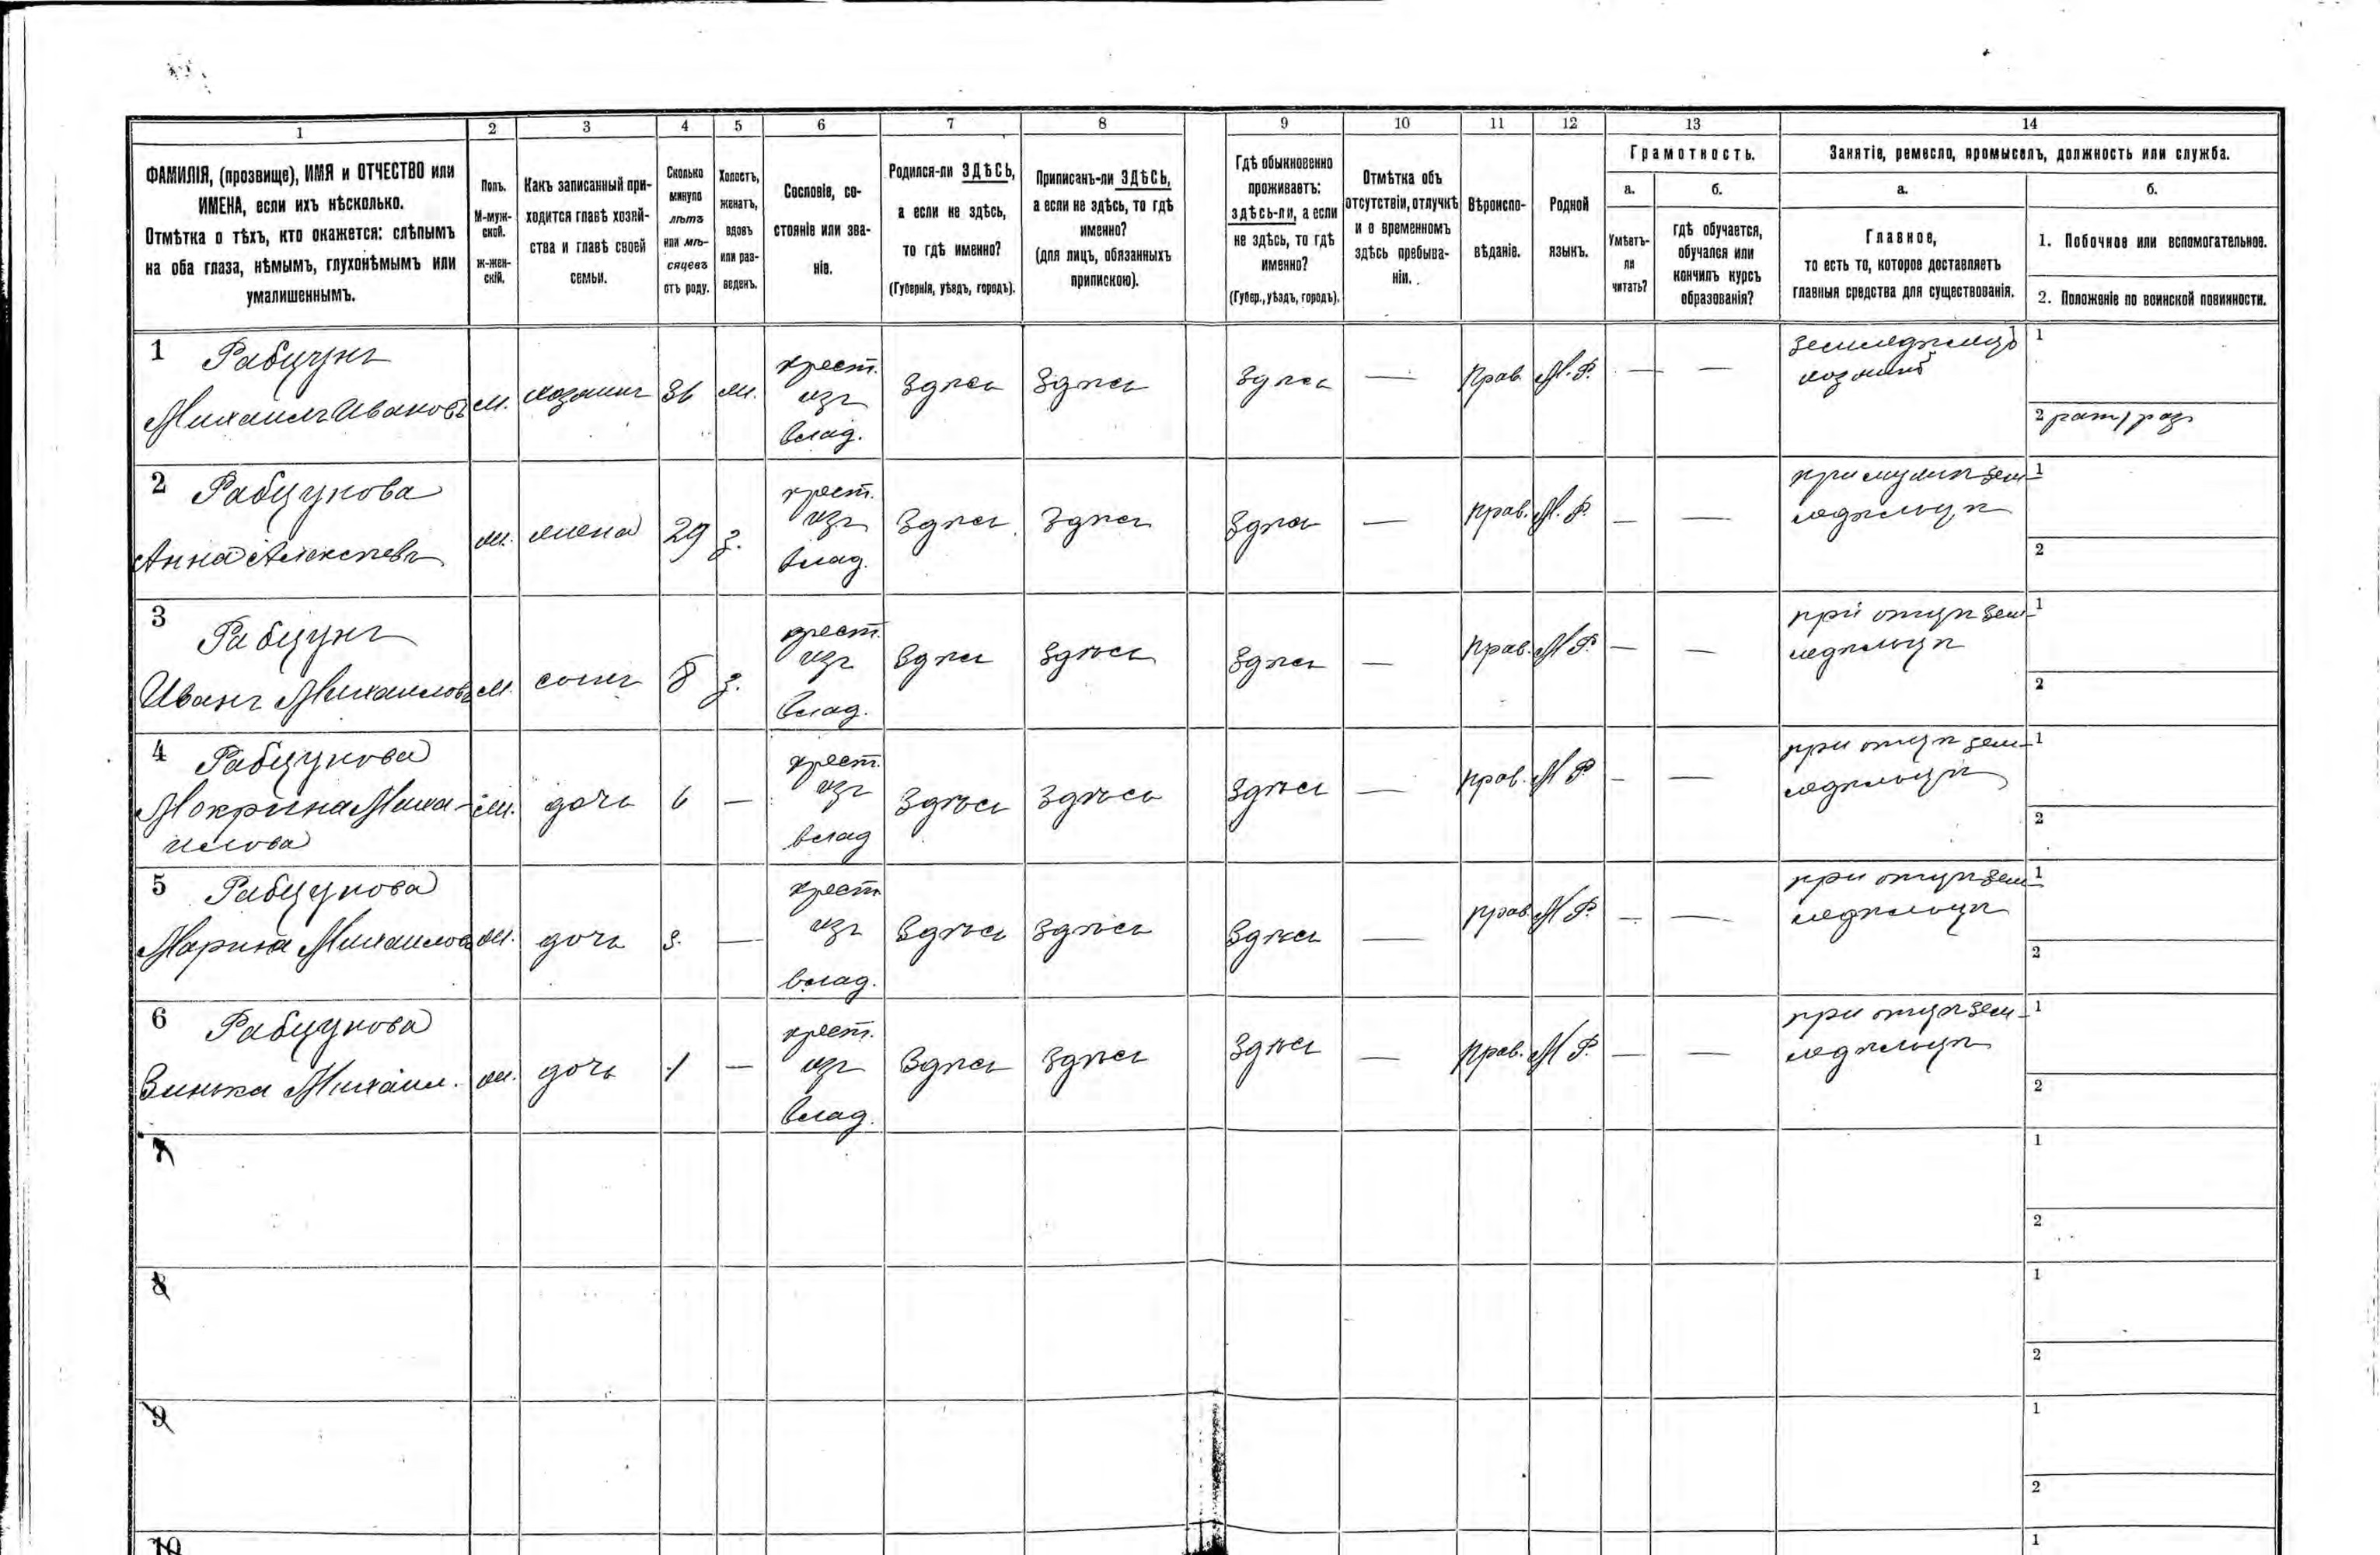 1 2 3 4 5 6 7 8 9 10 11 12 13 14
ФАМИЛІЯ, (прозвище), ИМЯ и ОТЧЕСТВО или
ИМЕНА, если ихъ нѣсколько.
Отмѣтка о тѣхъ, кто окажется: слѣпымъ
на оба глаза, нѣмымъ, глухонѣмымъ или
умалишеннымъ.
Полъ.
М-муж-
ской.
Ж-жен-
скій.
Какъ записанный при-
ходится главѣ хозяй-
ства и главѣ своей
семьи.
Сколько
минуло
лѣтъ
или мѣ-
сяцевъ
отъ роду.
Холостъ,
женатъ,
вдовъ
или раз-
веденъ.
Сословіе, со-
стояніе или зва-
ніе.
Родился-ли ЗДѢСЬ,
а если не здѣсь,
то гдѣ именно?
(Губернія, уѣздъ, городъ).
Приписанъ-ли ЗДѢСЬ,
а если не здѣсь, то гдѣ
именно?
(для лицъ, обязанныхъ
припискою).
Гдѣ обыкновенно
проживаетъ:
здѣсь-ли, а если
не здѣсь, то гдѣ
именно?
(Губер., уѣздъ, городъ).
Отмѣтка объ
отсутствіи, отлучкѣ
и о временномъ
здѣсь пребыва-
ніи.
Вѣроиспо-
вѣданіе.
Родной
языкъ.
Грамотность.
а.
Умѣетъ-
ли
читать?
б.
гдѣ обучается,
обучался или
кончилъ курсъ
образованія?
Занятіе, ремесло, промыселъ, должность или служба.
а.
Главное,
то есть то, которое доставляетъ
главныя средства для существованія.
б.
1. Побочное или вспомогательное.
2. Положеніе по воинской повинности.
1 Рабцунъ
Михаилъ Ивановъ
м. хозяинъ 36 ж.
крест.
изъ
влад.
Здѣсь Здѣсь Здѣсь — Прав. М. Р. — —
земледѣлецъ
хозяинъ
1
2 рат/раз
2 Рабцунова
Анна Алексѣевъ
ж. жена 29 з.
крест.
изъ
влад.
Здѣсь Здѣсь Здѣсь — Прав. М. Р. — —
при мужѣ зем-
ледѣльцѣ
1
2
3 Рабцунъ
Иванъ Михаиловъ
м. сынъ 8 з.
крест.
изъ
влад.
Здѣсь Здѣсь Здѣсь — Прав. М Р. — —
при отцѣ зем-
ледѣльцѣ
1
2
4 Рабцунова
Мокрина Миха-
илова
ж. дочь 6 —
крест.
изъ
влад
Здѣсь Здѣсь Здѣсь — Прав. М Р. — —
при отцѣ зем-
ледѣльцѣ
1
2
5 Рабцунова
Марина Михаилова
ж. дочь 3. —
крест.
изъ
влад.
Здѣсь Здѣсь Здѣсь — Прав. М Р. — —
при отцѣ зем-
ледѣльцѣ
1
2
6 Рабцунова
Зинька Михаил.
ж. дочь 1 —
крест.
изъ
влад.
Здѣсь Здѣсь Здѣсь — Прав. М Р. — —
при отцѣ зем-
ледѣльцѣ
1
2
7
1
2
8
1
2
9
1
2
10
1